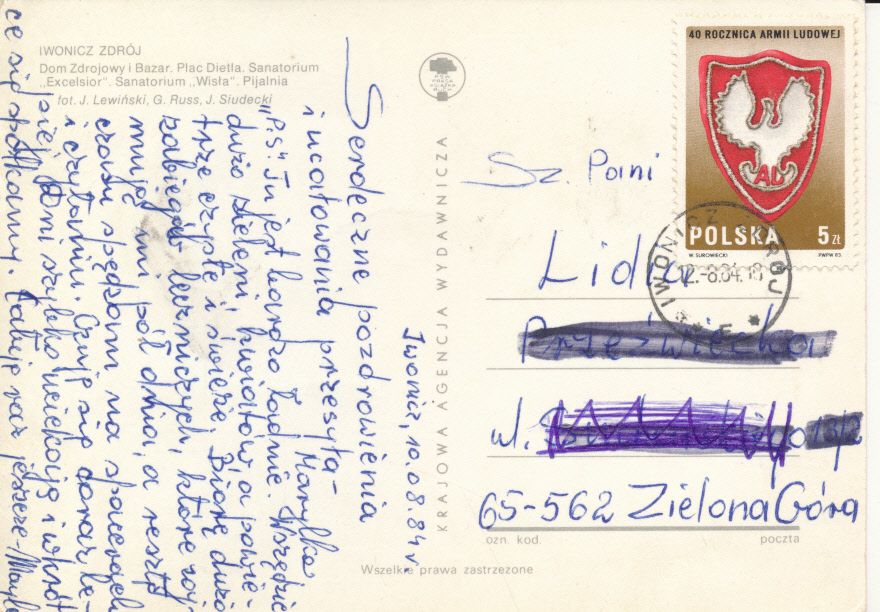 IWONICZ ZDRÓJ
Dom Zdrojowy i Bazar. Plac Dietla. Sanatorium
„Excelsior". Sanatorium „Wisła". Pijalnia
fot. J. Lewiński, G. Russ, J. Siudecki
Iwonicz, 10.08.84 r.
Serdeczne pozdrowienia
i ucałowania przesyła-
Marylka
„P.S." Tu jest bardzo ładnie. Wszędzie
dużo zieleni, kwiatów a powie-
trze czyste i świeże. Biorę dużo
zabiegów leczniczych, które zaj-
mują mi pół dnia, a resztę
czasu spędzam na spacerach
i czytaniu. Czuję się coraz le-
piej. Dni szybko uciekają i wkrót-
ce się spotkamy. Całuję raz jeszcze-
KRAJOWA AGENCJA WYDAWNICZA
40 ROCZNICA ARMII LUDOWEJ
AL
POLSKA 5 ZŁ
W. SUROWIECKI PWPW 83.
IWONICZ ZDRÓJ
Sz. Pani
Lidia
ul.
65-562 Zielona Góra
ozn. kod. poczta
Wszelkie prawa zastrzeżone